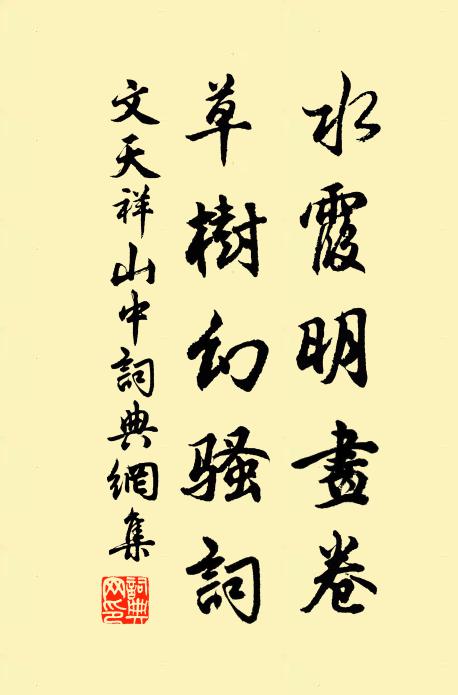 水霞明畫卷
草樹幻騷詞
文天祥山中詞典網集
詞典网印